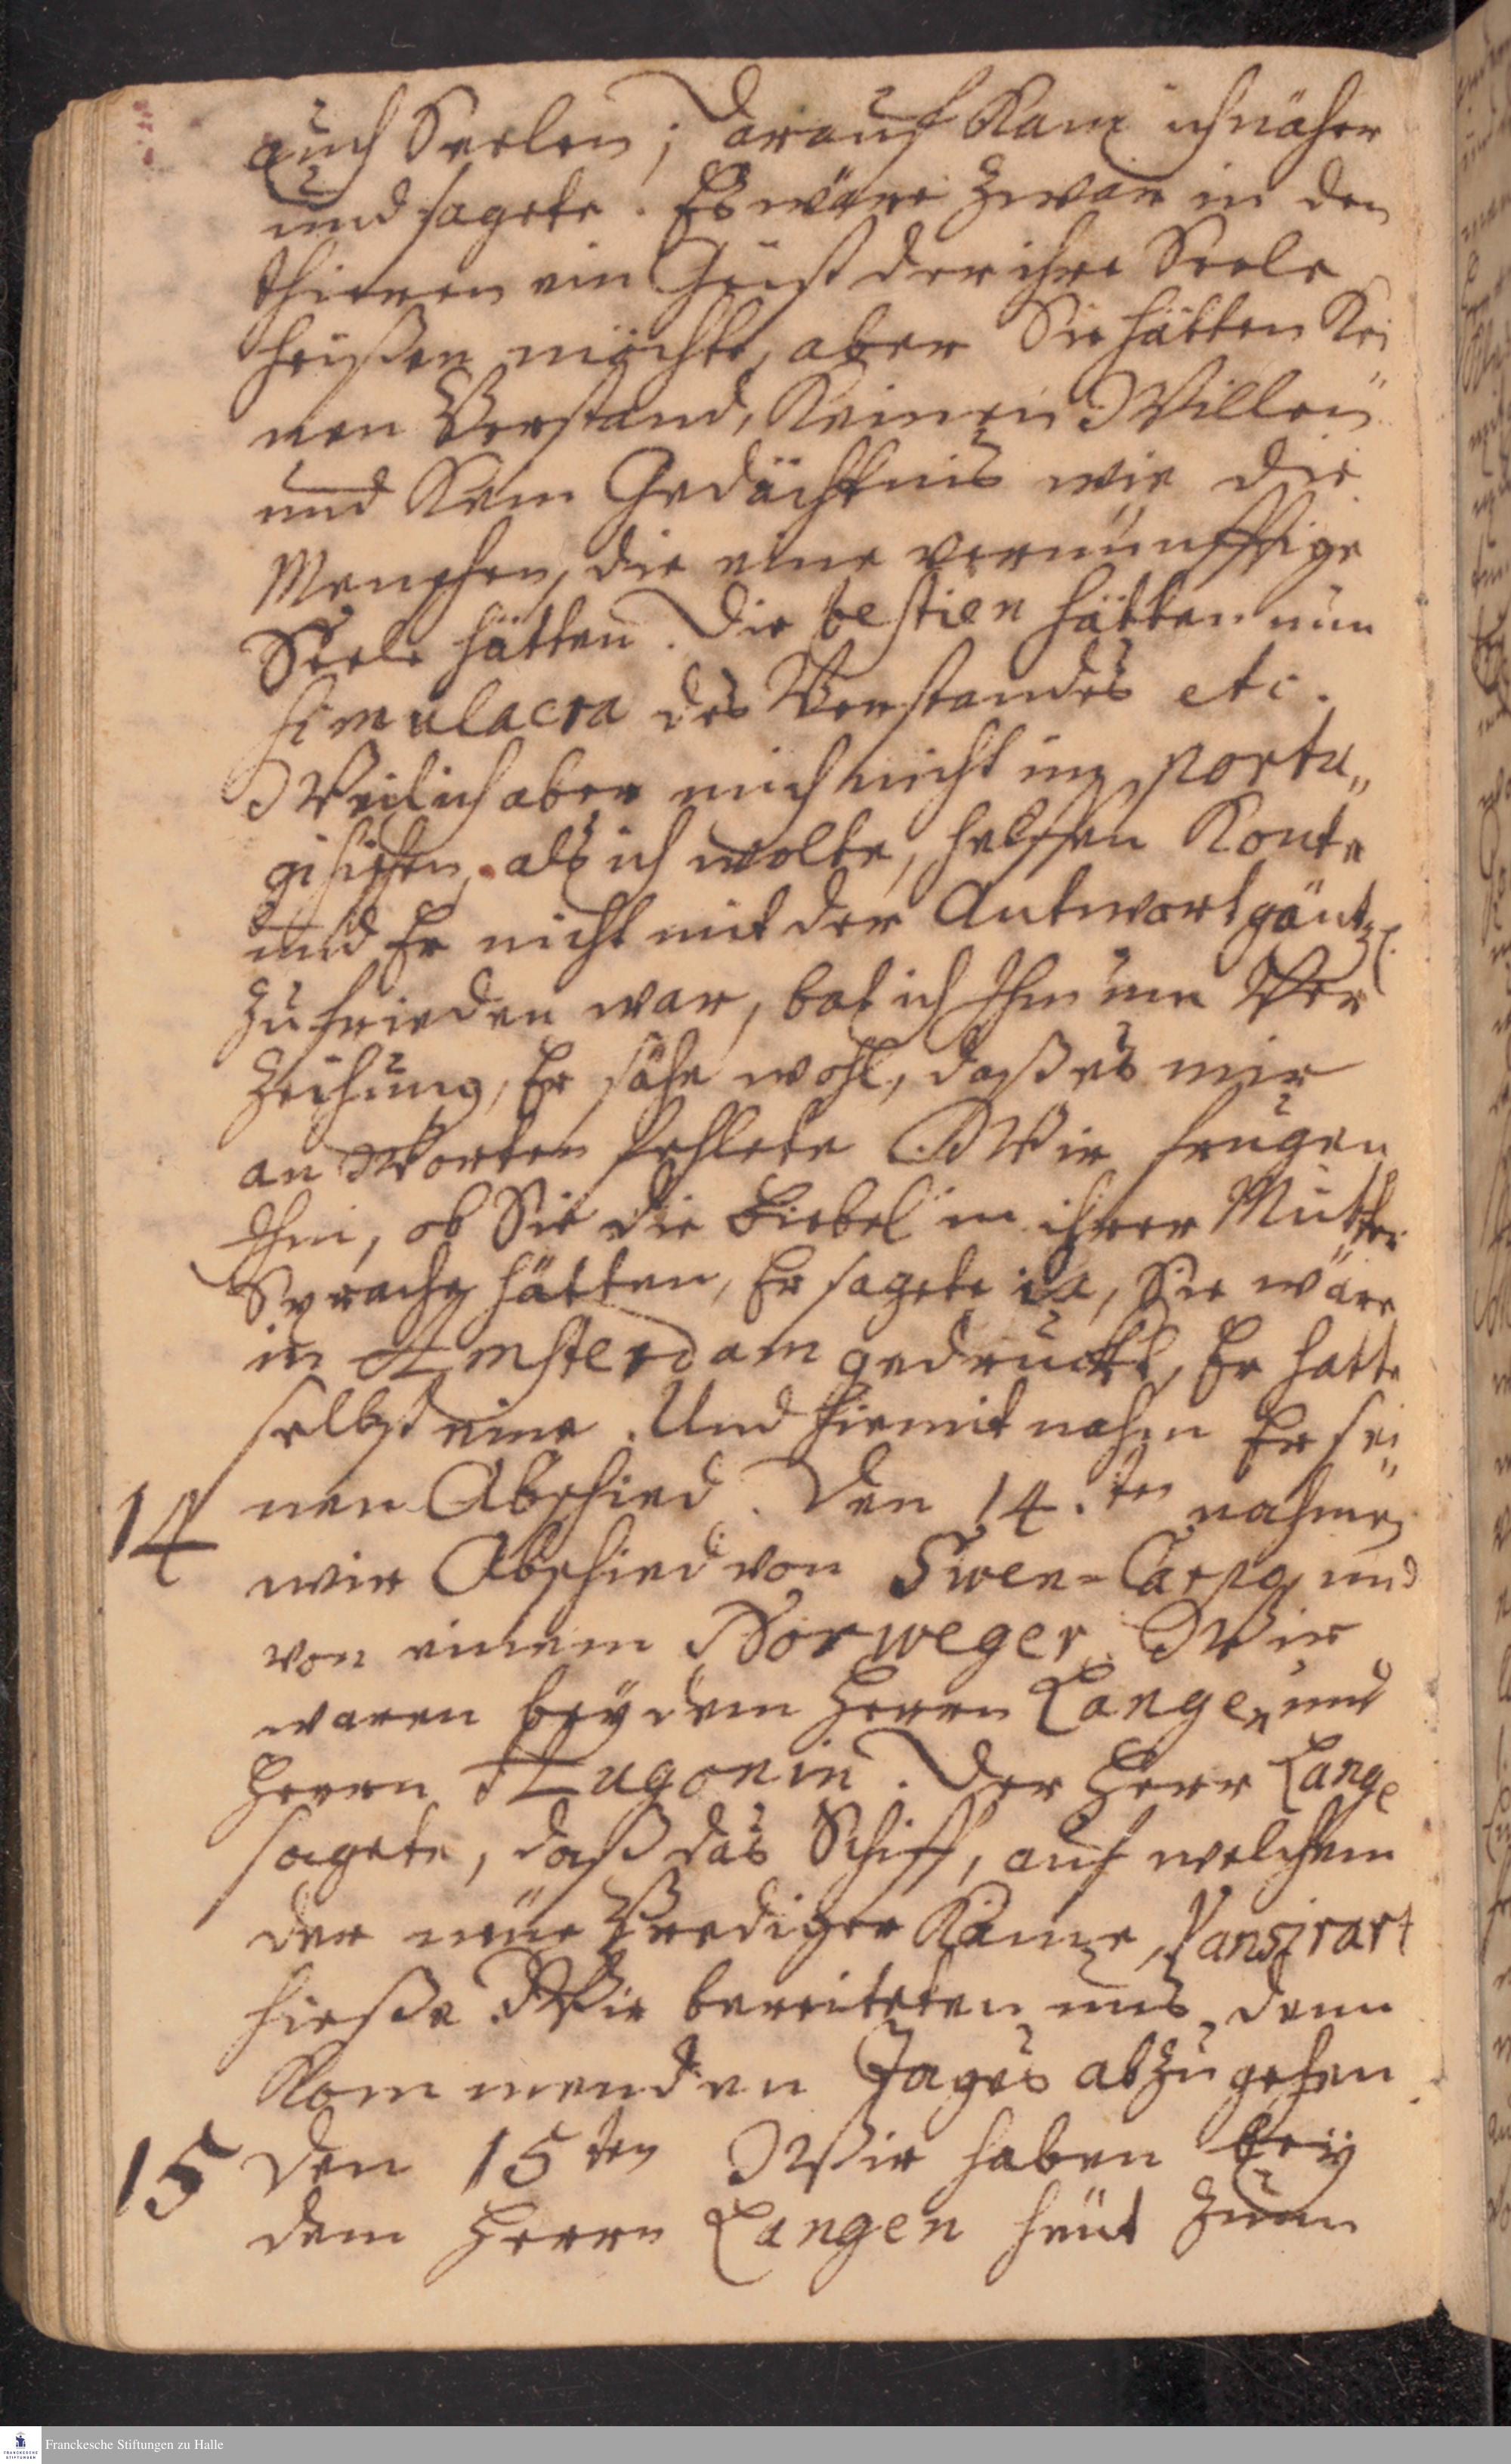 auch Seelen; darauf kam ich näher
und sagete. Es wäre zwar in den
thieren ein Geist der ihre Seele
heißen möchte, aber Sie hätten kei
nen Verstand, keinen Willen
und kein Gedächtnis wie die
Menschen, die eine vernünfftige
Seele hätten. Die bestien hätten nur
simulacra des Verstandes etc.
Weil ich aber mich nicht im portu„
gisischen, als ich wolte, helffen konte
und Er nicht mit der Antwort gäntzl.
zufrieden war, bat ich Ihn um Ver
zeihung, Er sähe wohl, daß es mir
an Worten fehlete. Wir frugen
Ihn, ob Sie die Biebel in ihrer Mutter
Sprache hätten, Er sagete ia, Sie wäre
in Amsterdam gedruckt, Er hatte
selbst eine. Und hiemit nahm Er sei„
14 nen Abschied. Den 14.ten nahmen
wir Abschied von Swen-Carzo, und
von einem Norweger. Wir
waren bey dem Herrn Langen und
Herrn Hugonin. Der Herr Lange
sagete, daß das Schiff, auf welchem
der neue Prediger käme, Vansirart
hieße. Wir bereiteten uns, denn
kommenden Tages abzugehen
15 Den 15ten Wir haben bey
dem Herrn Langen heut zum
Franckesche Stiftungen zu Halle
FRANCKESCHE
STIFTUNGEN